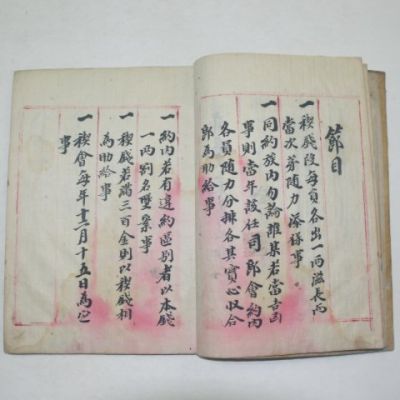 節目
一稧錢段每員各出一兩滋長而
當次第隨力添補事
一同約放內勿論誰某若當吉凶
事則當年該任司即會約內
各員隨力分排各其實心收合
郎為助給事
一約內若有違約區別者以本錢
一兩割名墨案事
一稧錢若滿三百金則以稧錢相
為助給事
一稧會每年十二月十五日為定
事